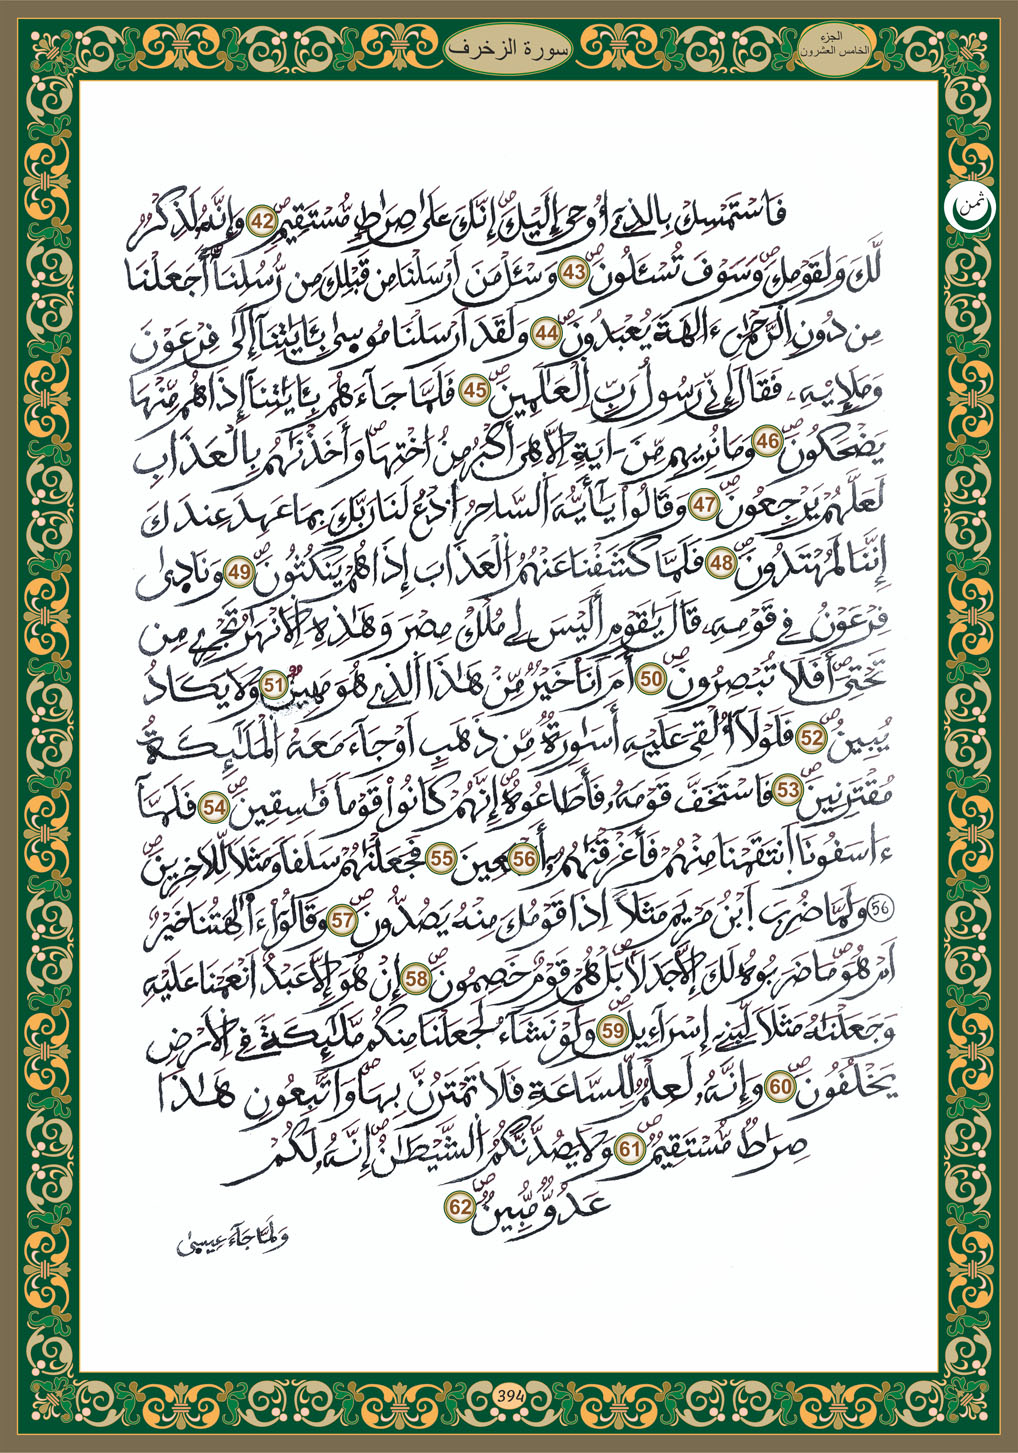 الجزء
الخامس العشرون
سورة الزخرف
ثمن
فَاسْتَمْسِكْ بِالذِےٓ أُوحِيَ إِلَيْكَ إِنَّكَ عَلَىٰ صِرَاطٍ مُّسْتَقِيمٍ 42 وَإِنَّهُۥ لَذِكْرٌ
لَّكَ وَلِقَوْمِكَ وَسَوْفَ تُسْـَٔلُونَ 43 وَسْـَٔلْ مَنَ اَرْسَلْنَا مِن قَبْلِكَ مِن رُّسُلِنَآ أَجَعَلْنَا
مِن دُونِ الرَّحْمَٰنِ ءَالِهَةً يُعْبَدُونَ 44 وَلَقَدَ اَرْسَلْنَا مُوسَىٰ بِـَٔايَٰتِنَآ إِلَىٰ فِرْعَوْنَ
وَمَلَإِيْهِۦ فَقَالَ إِنِّي رَسُولُ رَبِّ الْعَٰلَمِينَ 45 فَلَمَّا جَآءَهُم بِـَٔايَٰتِنَآ إِذَا هُم مِّنْهَا
يَضْحَكُونَ 46 وَمَا نُرِيهِم مِّنَ ـايَةٍ اِلَّا هِيَ أَكْبَرُ مِنُ اخْتِهَا وَأَخَذْنَٰهُم بِالْعَذَابِ
لَعَلَّهُمْ يَرْجِعُونَ 47 وَقَالُواْ يَٰٓأَيُّهَ اَلسَّاحِرُ اُدْعُ لَنَا رَبَّكَ بِمَا عَهِدَ عِندَكَ
إِنَّنَا لَمُهْتَدُونَ 48 فَلَمَّا كَشَفْنَا عَنْهُمُ الْعَذَابَ إِذَا هُمْ يَنكُثُونَ 49 وَنَادَىٰ
فِرْعَوْنُ فِي قَوْمِهِۦ قَالَ يَٰقَوْمِ أَلَيْسَ لِے مُلْكُ مِصْرَ وَهَٰذِهِ اِلَانْهَٰرُ تَجْرِے مِن
تَحْتِيَ أَفَلَا تُبْصِرُونَ 50 أَمَ اَنَا خَيْرٌ مِّنْ هَٰذَا اَلذِے هُوَ مَهِينٌ 51 وَلَا يَكَادُ
يُبِينُ 52 فَلَوْلَآ أُلْقِيَ عَلَيْهِ أَسَٰوِرَةٌ مِّن ذَهَبٍ اَوْ جَآءَ مَعَهُ اُلْمَلَٰٓئِكَةُ
مُقْتَرِنِينَ 53 فَاسْتَخَفَّ قَوْمَهُۥ فَأَطَاعُوهُ إِنَّهُمْ كَانُواْ قَوْماً فَٰسِقِينَ 54 فَلَمَّآ
ءَاسَفُونَا اَنتَقَمْنَا مِنْهُمْ فَأَغْرَقْنَٰهُمُۥٓ أَجْمَعِينَ 56 55 فَجَعَلْنَٰهُمْ سَلَفاً وَمَثَلاً لِّلَاخِرِينَ
56 وَلَمَّا ضُرِبَ اَبْنُ مَرْيَمَ مَثَلاً اِذَا قَوْمُكَ مِنْهُ يَصُدُّونَ 57 وَقَالُوٓاْ ءَاٰلِهَتُنَا خَيْرٌ
اَمْ هُوَ مَا ضَرَبُوهُ لَكَ إِلَّا جَدَلاً بَلْ هُمْ قَوْمٌ خَصِمُونَ 58 إِنْ هُوَ إِلَّا عَبْدٌ اَنْعَمْنَا عَلَيْهِ
وَجَعَلْنَٰهُ مَثَلاً لِّبَنِےٓ إِسْرَآءِيلَ 59 وَلَوْ نَشَآءُ لَجَعَلْنَا مِنكُم مَّلَٰٓئِكَةً فِي اِلَارْضِ
يَخْلُفُونَ 60 وَإِنَّهُۥ لَعِلْمٌ لِّلسَّاعَةِ فَلَا تَمْتَرُنَّ بِهَا وَاتَّبِعُونِ هَٰذَا
صِرَاطٌ مُّسْتَقِيمٌ 61 وَلَا يَصُدَّنَّكُمُ الشَّيْطَٰنُ إِنَّهُۥ لَكُمْ
عَدُوٌّ مُّبِينٌ 62
وَلَمَّا جَآءَ عِيسَىٰ
394